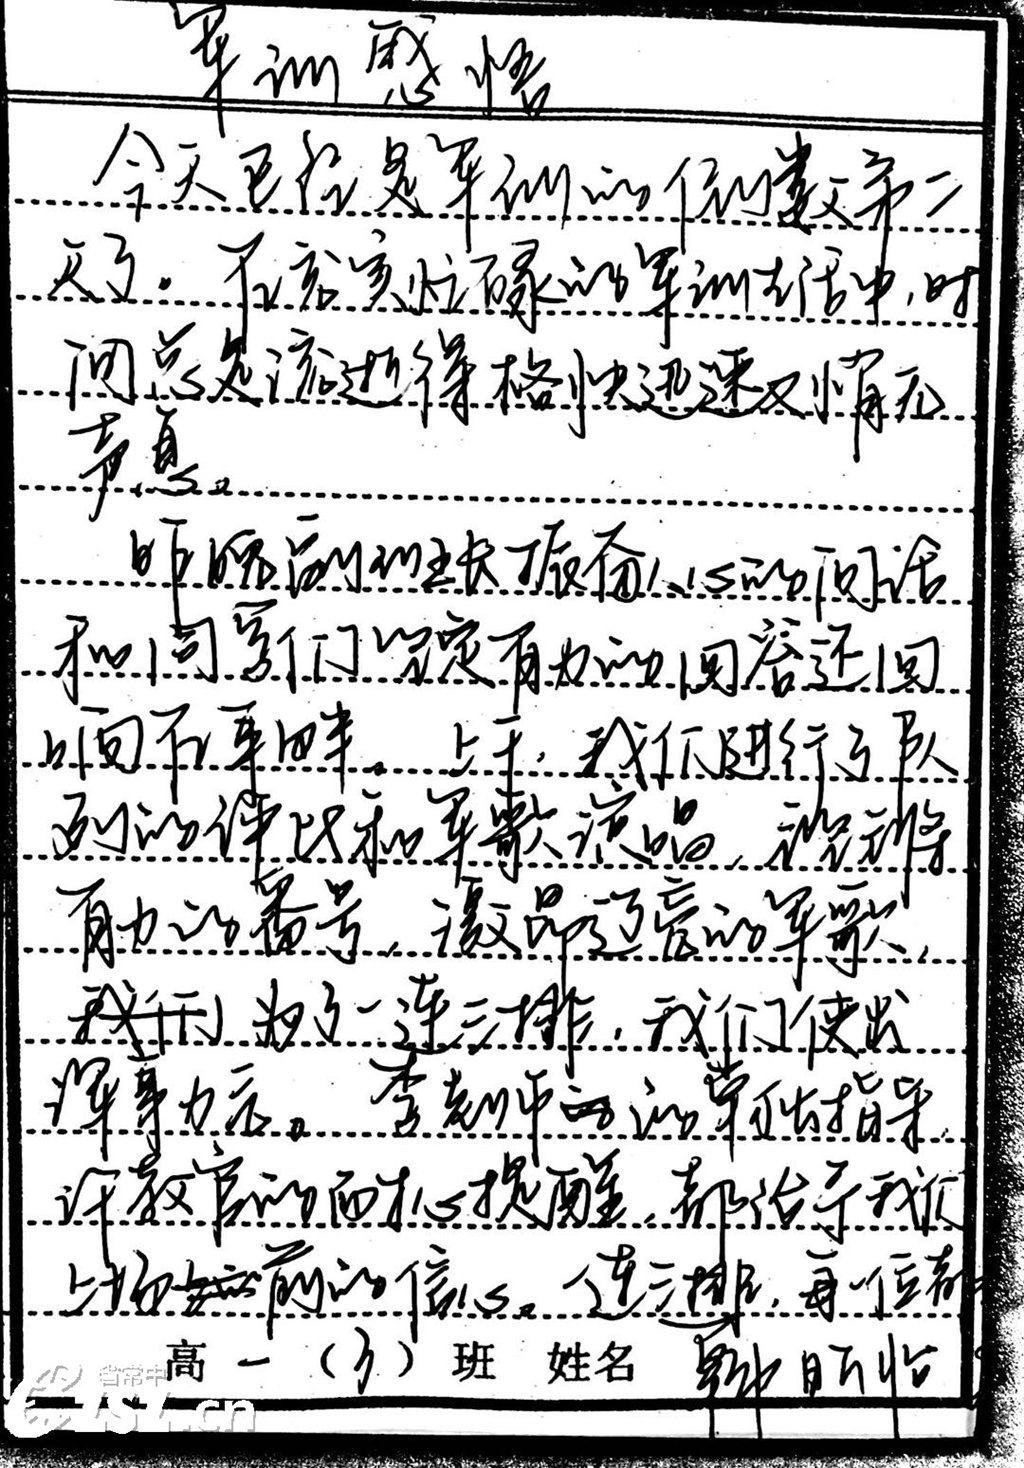 军训感悟
今天已经是军训的倒数第二
天了。在充实忙碌的军训生活中,时
间总是流逝得格外迅速又悄无
声息。
昨晚副班长振奋人心的问话
和同学们坚定有力的回答还回
响在耳畔。上午,我们进行了队
列的评比和军歌演唱,
有力的番号,激昂嘹亮的军歌,
为了一连三排,我们使出
浑身力气。李老师的掌仪指导,
许教官的耐心提醒,都给予我们
上场前的信心。一连三排,每一位都
高一(3)班 姓名 韩
省常中